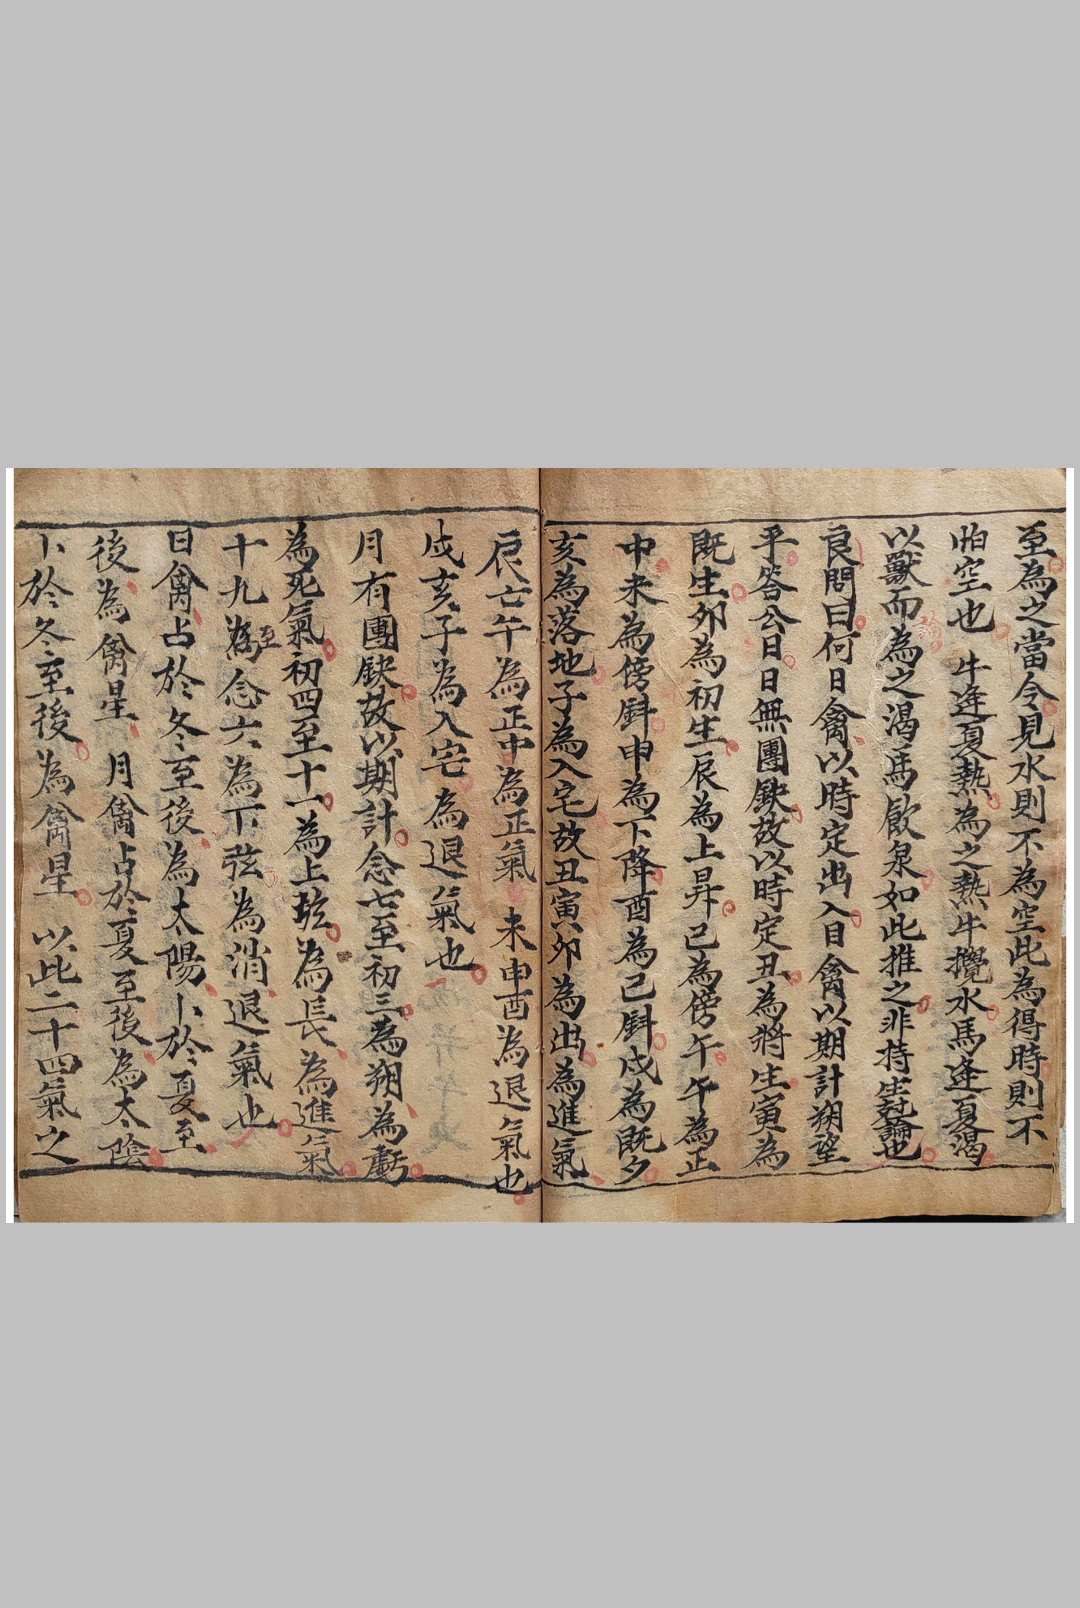 至為之當令見水則不為空此為得時則不
怕空也　牛逢夏熱為之熱牛攪水馬逢夏渴
以獸而為之渴馬飲泉如此推之非持生討論也
良問曰何日禽以時定出入日禽以期計朔望
乎答公曰日無團缺故以時定丑為將生寅為
既生卯為初生辰為上昇巳為傍午午為正
中未為傍斜申為下降酉為已斜戌為既夕
亥為落地子為入宅故丑寅卯為出為進氣
辰亡午為正中為正氣　未申酉為退氣也
戌亥子為入宅為退氣也
月有團缺故以期計念七至初三為朔為虧
為死氣初四至十一為上弦為長為進氣
十九為至念六為下弦為消退氣也
日禽占於冬至後為太陽卜於夏至
後為禽星　月禽占於夏至後為太陰
卜於冬至後為禽星　以此二十四氣之